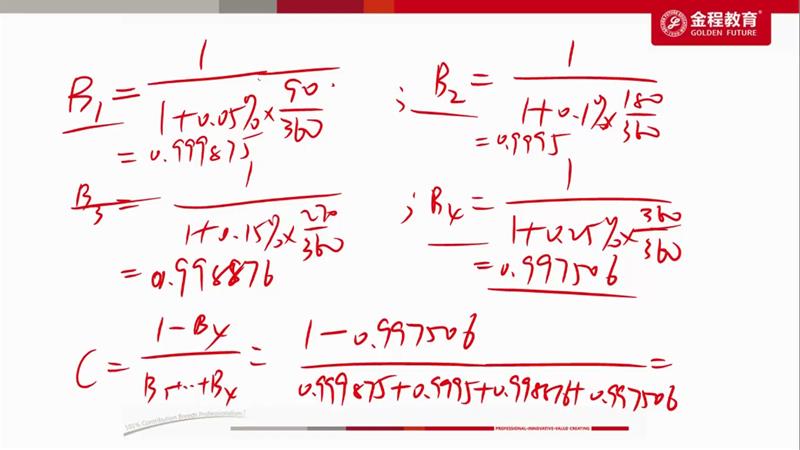 金程教育
GOLDEN FUTURE
B₁ = 1 / (1+0.05%×90/360) ; B₂ = 1 / (1+0.1%×180/360)
= 0.999875 = 0.9995
B₃ = 1 / (1+0.15%×270/360) ; B₄ = 1 / (1+0.25%×360/360)
= 0.998876 = 0.997506
C = (1-B₄) / (B₁+...+B₄) = (1-0.997506) / (0.999875+0.9995+0.998876+0.997506) =
101% Contribution Breeds Professionalism
PROFESSIONAL·INNOVATIVE·VALUE CREATING